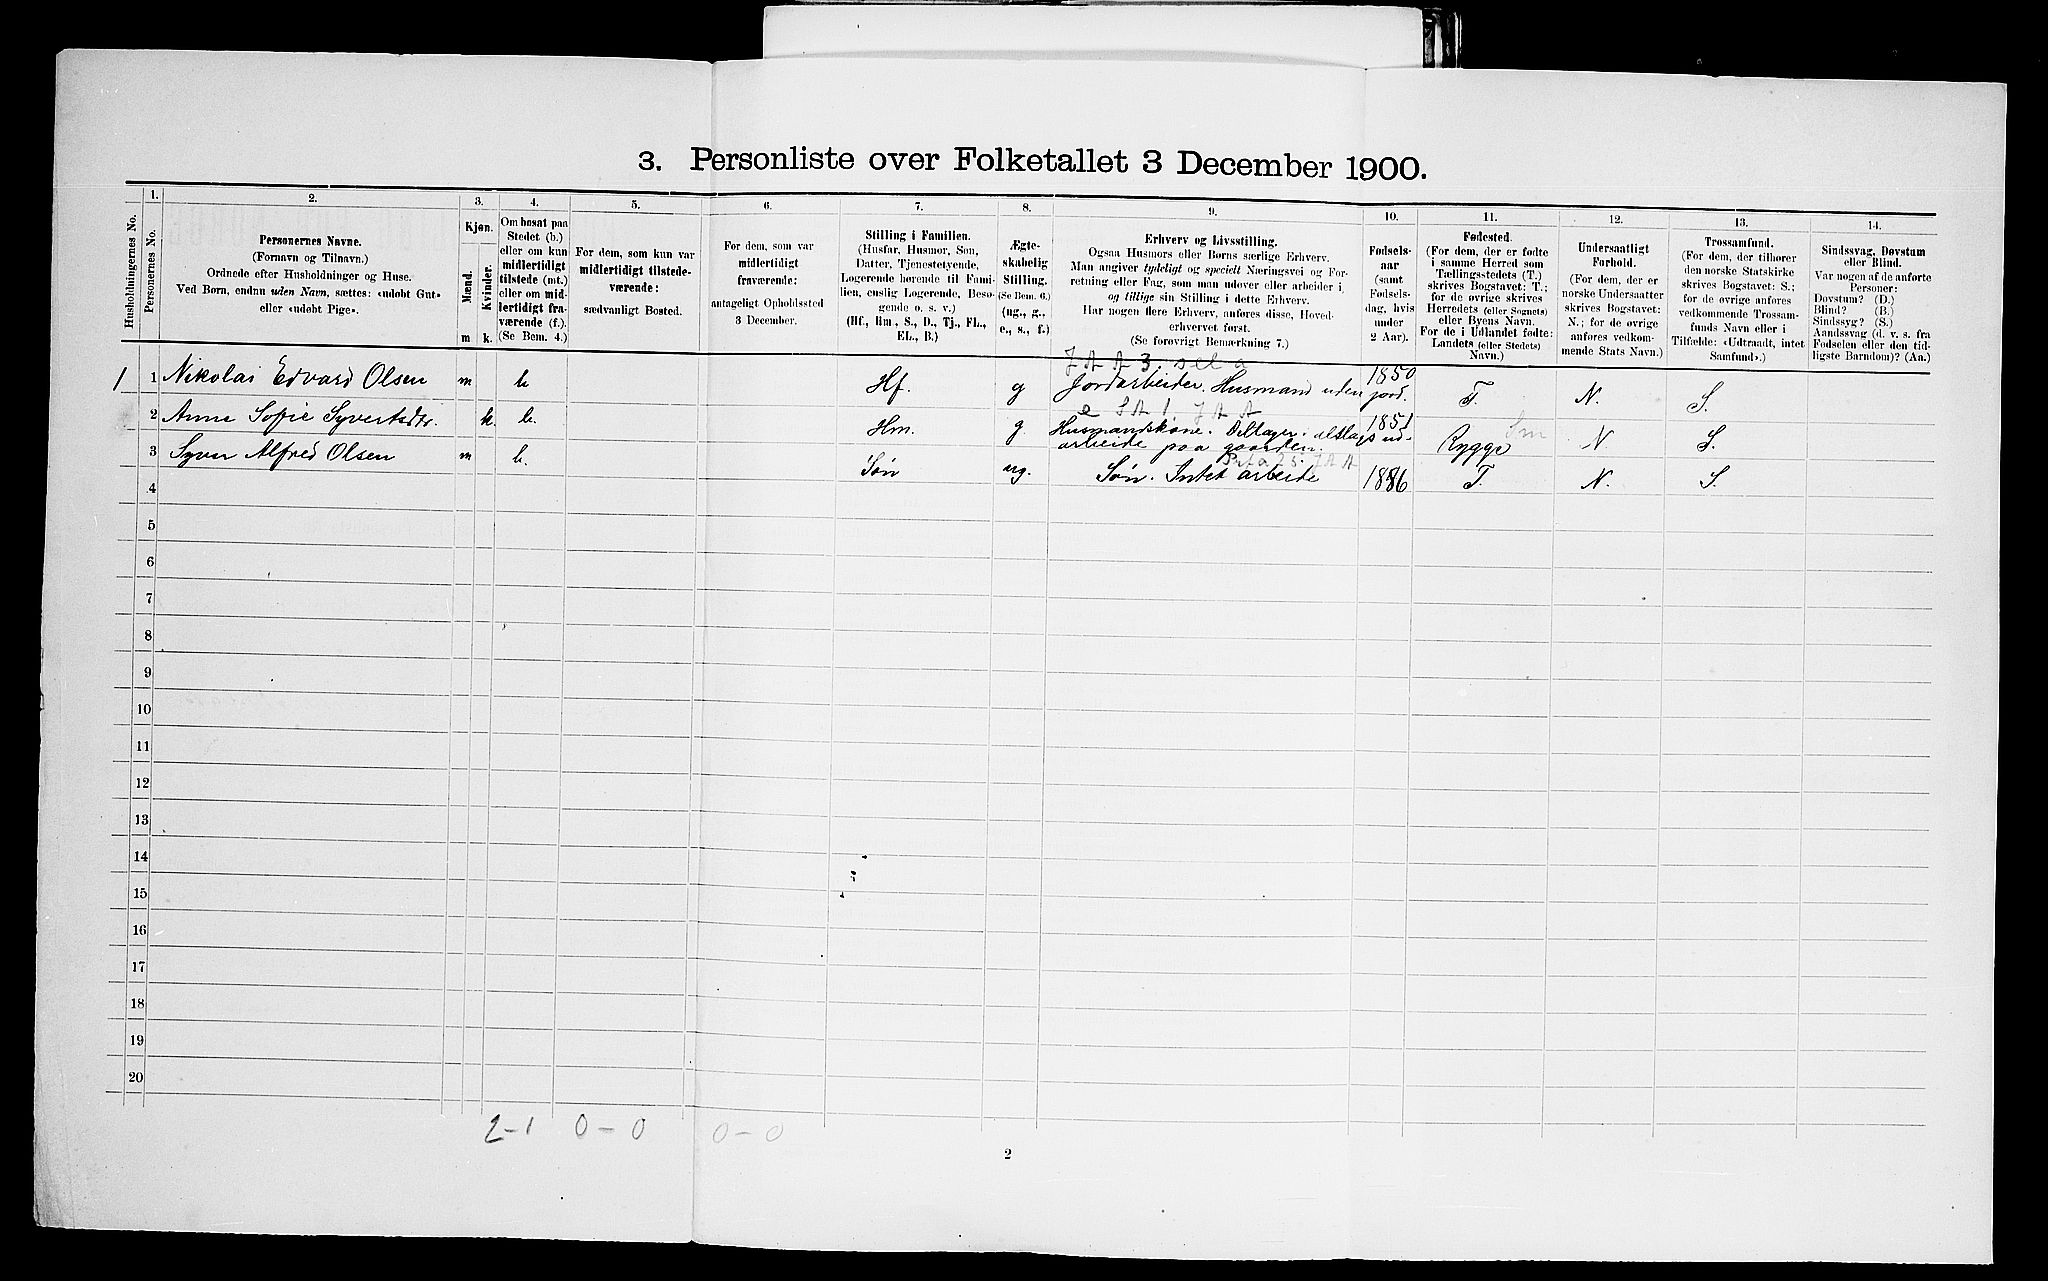 3. Personliste over Folketallet 3 December 1900.
Husholdningernes No.
1.
Personernes No.
2.
Personernes Navne.
(Fornavn og Tilnavn.)
Ordnede efter Husholdninger og Huse.
Ved Børn, endnu uden Navn, sættes: «udøbt Gut»
eller «udøbt Pige».
3.
Kjøn.
Mænd.
Kvinder.
m. k.
4.
Om bosat paa
Stedet (b.)
eller om kun
midlertidigt
tilstede (mt.)
eller om mid-
lertidigt fra-
værende (f.).
(Se Bem. 4.)
5.
For dem, som kun var
midlertidigt tilstede-
værende:
sædvanligt Bosted.
6.
For dem, som var
midlertidigt
fraværende:
antageligt Opholdssted
3 December.
7.
Stilling i Familien.
(Husfar, Husmor, Søn,
Datter, Tjenestetyende,
Logerende hørende til Fami-
lien, enslig Logerende, Besø-
gende o. s. v.)
(Hf., Hm., S., D., Tj., FL.,
EL., B.)
8.
Ægte-
skabelig
Stilling.
(Se Bem. 6.)
(ug., g.,
e., s., f.)
9.
Erhverv og Livsstilling.
Ogsaa Husmors eller Børns særlige Erhverv.
Man angiver tydeligt og specielt Næringsvei og For-
retning eller Fag, som man udøver eller arbeider i,
og tillige sin Stilling i dette Erhverv.
Har nogen flere Erhverv, anføres disse, Hoved-
erhvervet først.
(Se forøvrigt Bemærkning 7.)
10.
Fødsels-
aar
(samt
Fødsels-
dag, hvis
under
2 Aar).
11.
Fødested.
(For dem, der er fødte
i samme Herred som
Tællingsstedets (T.)
skrives Bogstavet: T.;
for de øvrige skrives
Herredets (eller Sognets)
eller Byens Navn.
For de i Udlandet fødte:
Landets (eller Stedets)
Navn.)
12.
Undersaatligt
Forhold.
(For dem, der er
norske Undersaatter
skrives Bogstavet:
N.; for de øvrige
anføres vedkom-
mende Stats Navn.)
13.
Trossamfund.
(For dem, der tilhører
den norske Statskirke
skrives Bogstavet: S.;
for de øvrige anføres
vedkommende Trossam-
funds Navn eller i
Tilfælde: «Udtraadt, intet
Samfund».)
14.
Sindssvag, Døvstum
eller Blind.
Var nogen af de anførte
Personer:
Døvstum? (D.)
Blind? (B.)
Sindssyg? (S.)
Aandssvag (d. v. s. fra
Fødselen eller den tid-
ligste Barndom)? (Aa.)
1 1 Nikolai Edvard Olsen m b. Hf. g Jordarbeider. Husmand uden jord. 1850 T. N. S.
2 Anne Sofie Syvertsdtr. k. b. Hm. g. Husmandskone. Deltager i alslags ud-
arbeide paa gaarden. 1851 Rygge N S.
3 Syver Alfred Olsen m b. Søn ug. Søn. Intet arbeide 1886 T. N. S.
4
5
6
7
8
9
10
11
12
13
14
15
16
17
18
19
20
2-1 0-0 0-0
2